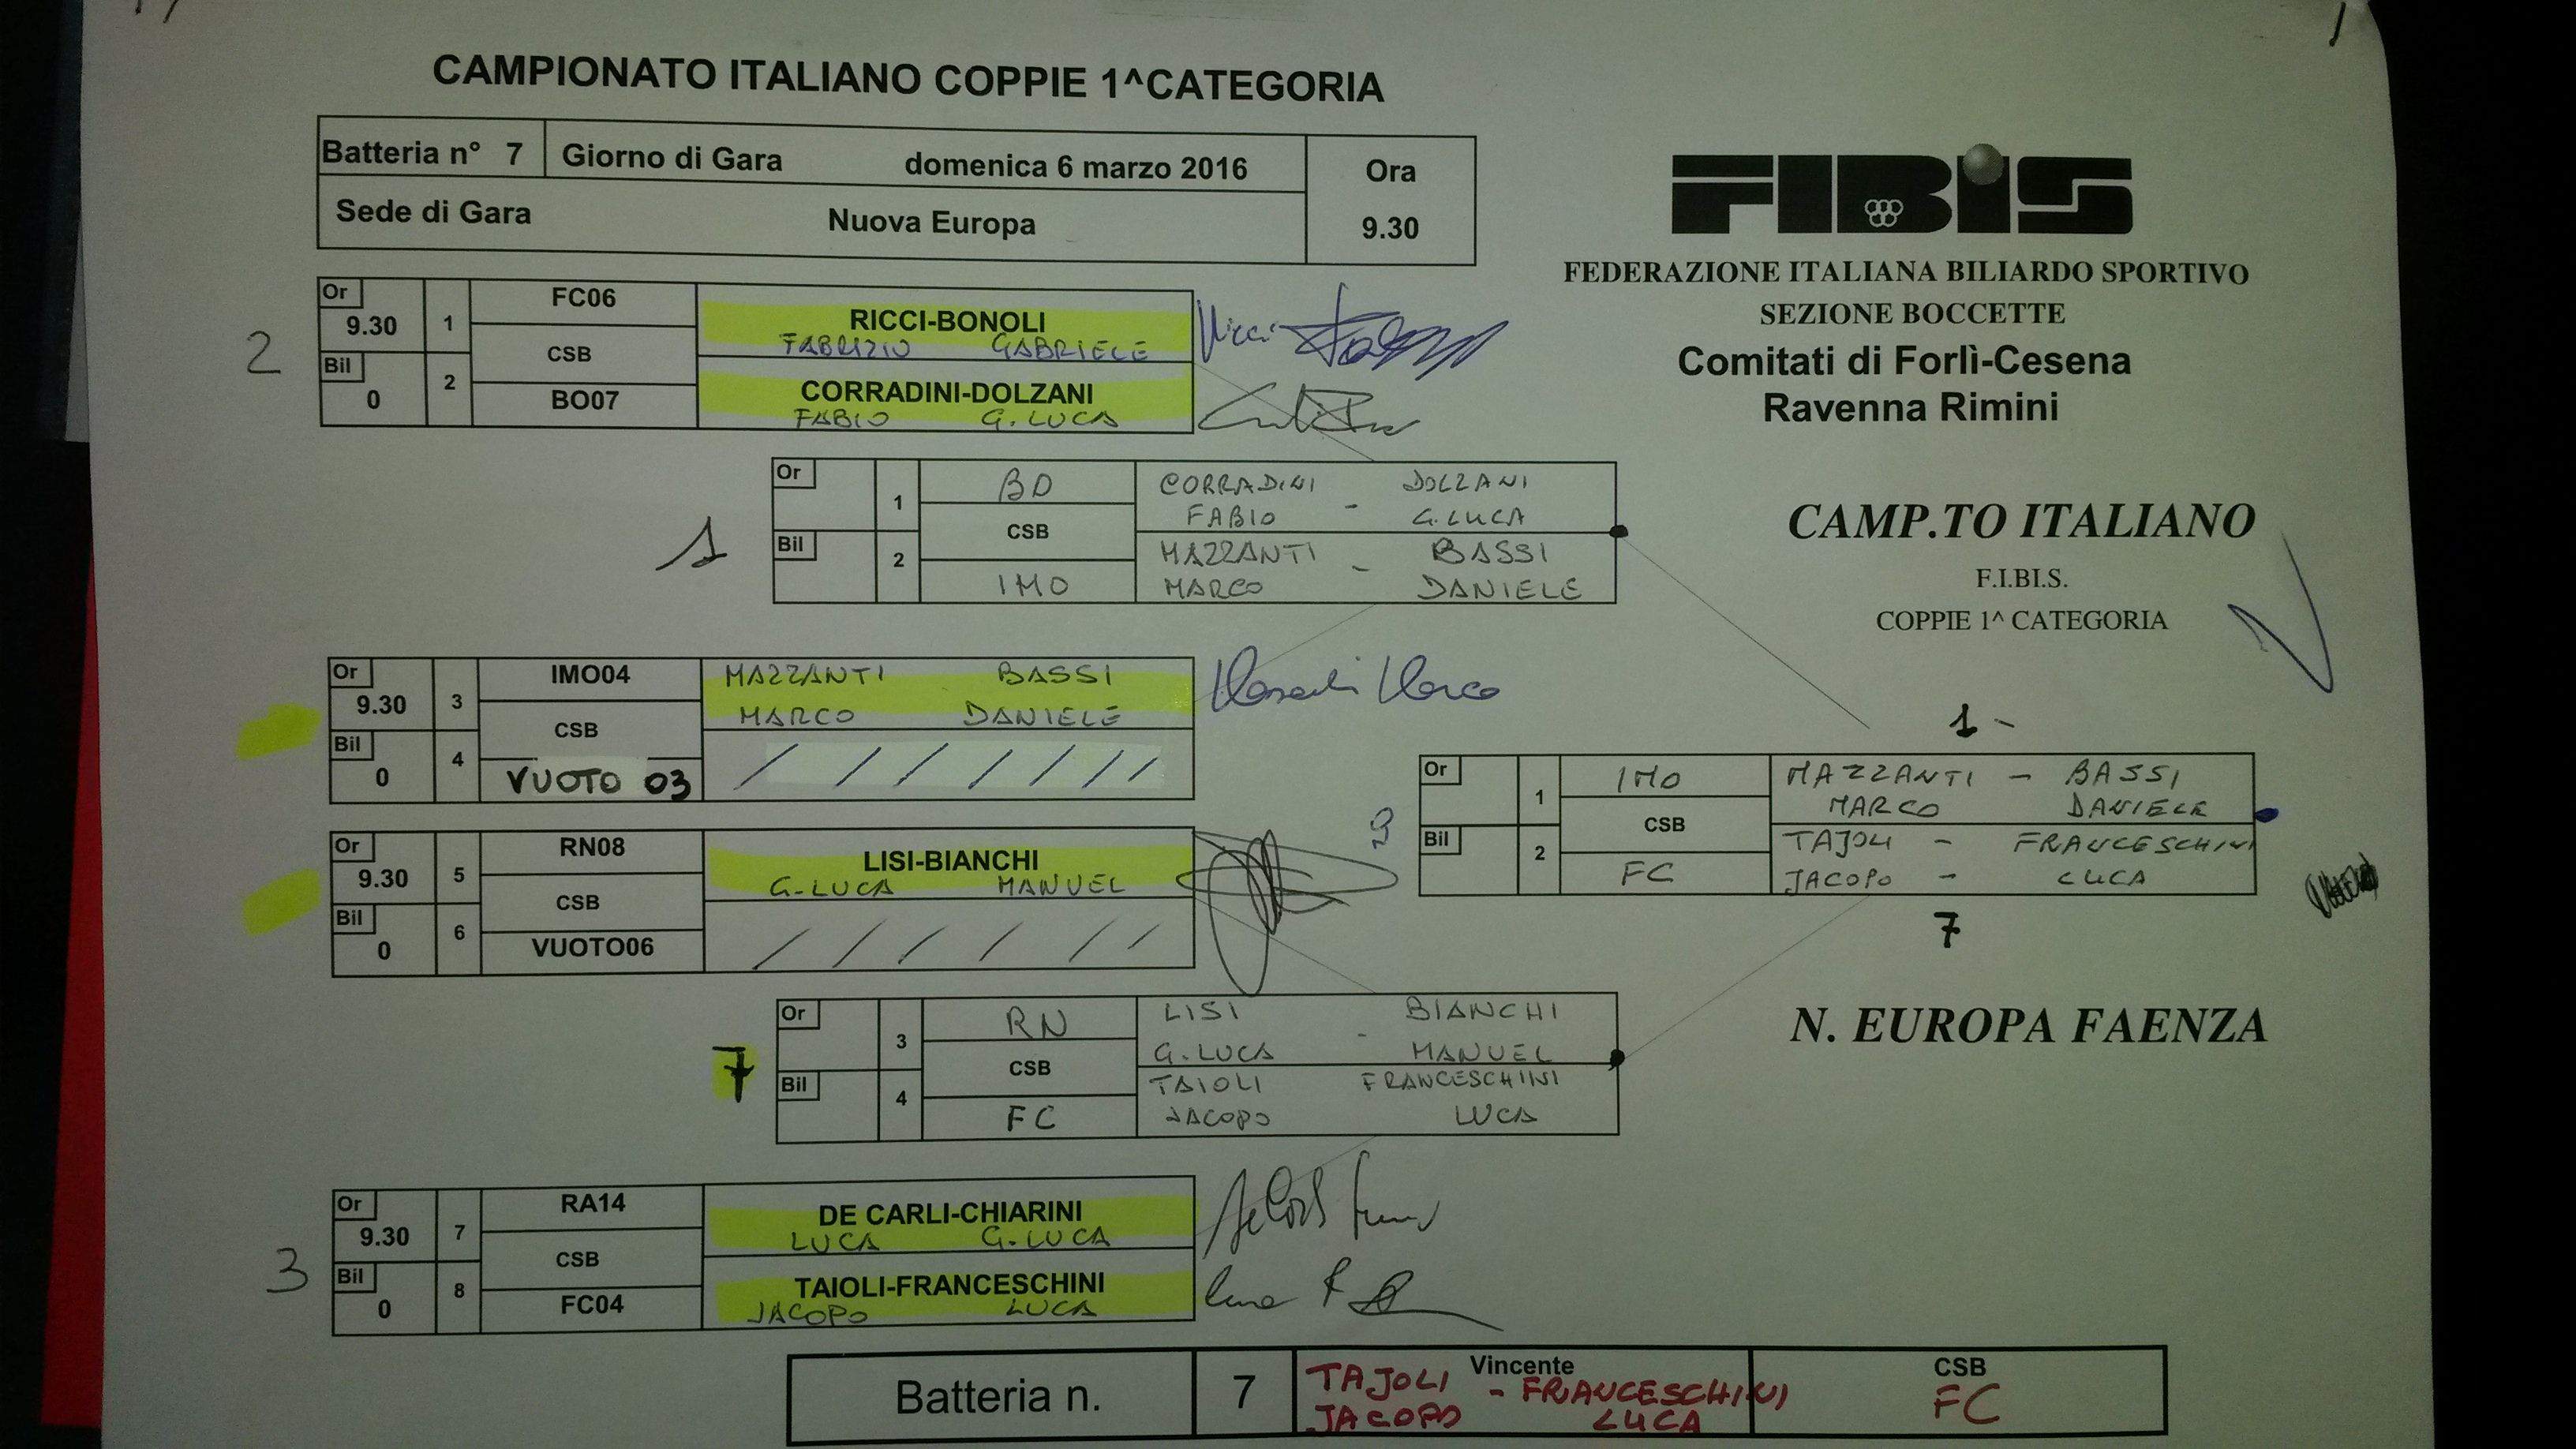 CAMPIONATO ITALIANO COPPIE 1^CATEGORIA
Batteria n° 7 Giorno di Gara domenica 6 marzo 2016 Ora
Sede di Gara Nuova Europa 9.30
FIBIS
FEDERAZIONE ITALIANA BILIARDO SPORTIVO
SEZIONE BOCCETTE
Comitati di Forlì-Cesena
Ravenna Rimini
CAMP.TO ITALIANO
F.I.BI.S.
COPPIE 1^ CATEGORIA
2
Or 9.30 1 FC06 RICCI-BONOLI
FABRIZIO GABRIELE Ricci
CSB
Bil 0 2 BO07 CORRADINI-DOLZANI
FABIO G. LUCA
1
Or 1 BO CORRADINI DOLZANI
FABIO - G. LUCA
CSB
Bil 2 IMO MAZZANTI BASSI
MARCO - DANIELE
Or 9.30 3 IMO04 MAZZANTI BASSI
MARCO DANIELE
CSB
Bil 0 4 VUOTO 03 / / / / / / /
Or 9.30 5 RN08 LISI-BIANCHI
G-LUCA MANUEL
CSB
Bil 0 6 VUOTO06 / / / / / /
1 -
Or 1 IMO MAZZANTI - BASSI
MARCO DANIELE
CSB
Bil 2 FC TAJOLI - FRANCESCHINI
JACOPO - LUCA
7
N. EUROPA FAENZA
7
Or 3 RN LISI BIANCHI
G. LUCA - MANUEL
CSB
Bil 4 FC TAIOLI FRANCESCHINI
JACOPO LUCA
3
Or 9.30 7 RA14 DE CARLI-CHIARINI
LUCA G. LUCA
CSB
Bil 0 8 FC04 TAIOLI-FRANCESCHINI
JACOPO LUCA
Batteria n. 7 Vincente CSB
TAJOLI - FRANCESCHINI FC
JACOPO LUCA